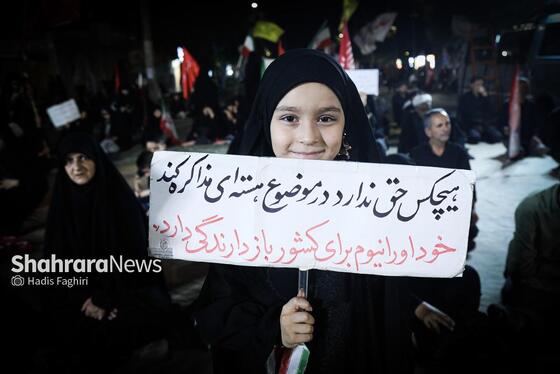 هیچکس حق ندارد در موضوع هسته‌ای مذاکره کند
خود اورانیوم برای کشور بازدارندگی دارد.
ShahraraNEWS
Hadis Faghiri